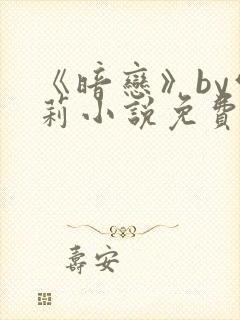 《暗戀》by
莉小說免費
壽安